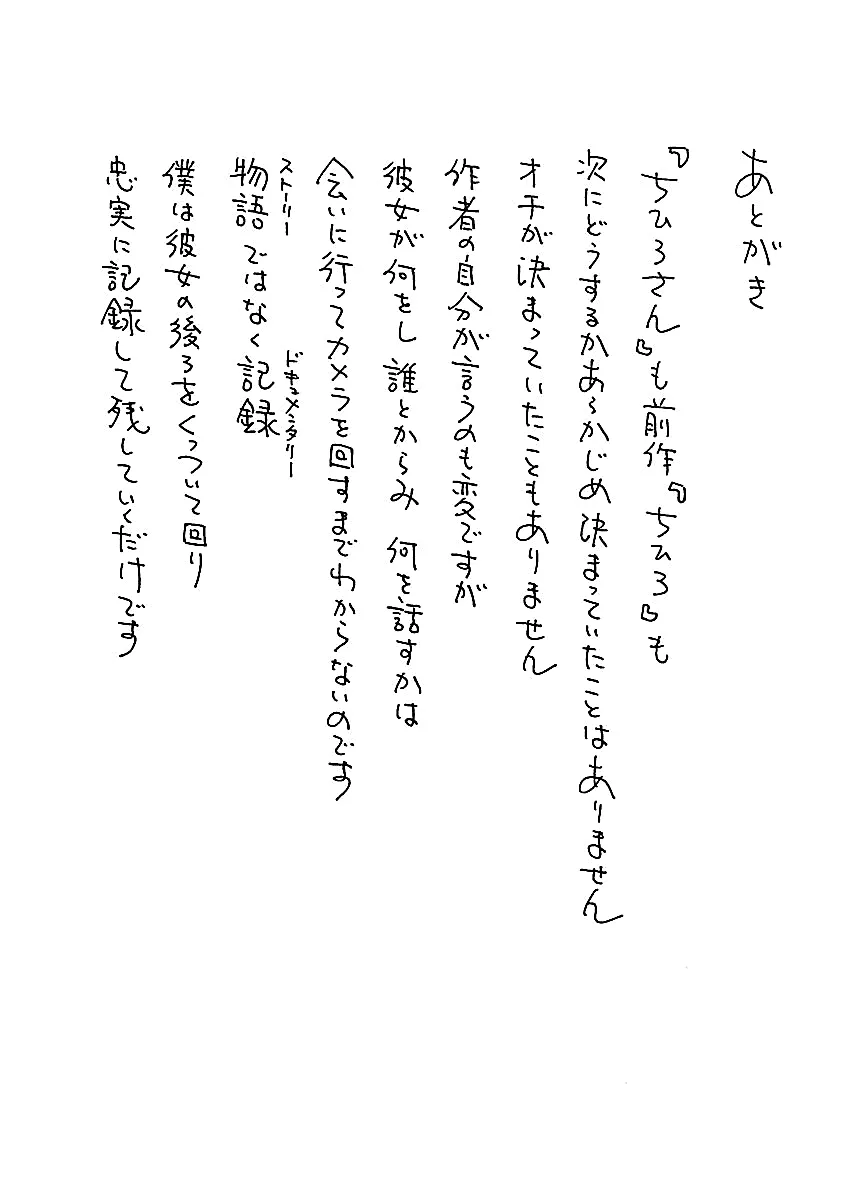 あとがき
『ちひろさん』も前作『ちひろ』も
次にどうするかあらかじめ決まっていたことはありません
オチが決まっていたこともありません
作者の自分が言うのも変ですが
彼女が何をし 誰とからみ 何を話すかは
会いに行ってカメラを回すまでわからないのです
ストーリー ドキュメンタリー
物語ではなく記録
僕は彼女の後ろをくっついて回り
忠実に記録して残していくだけです